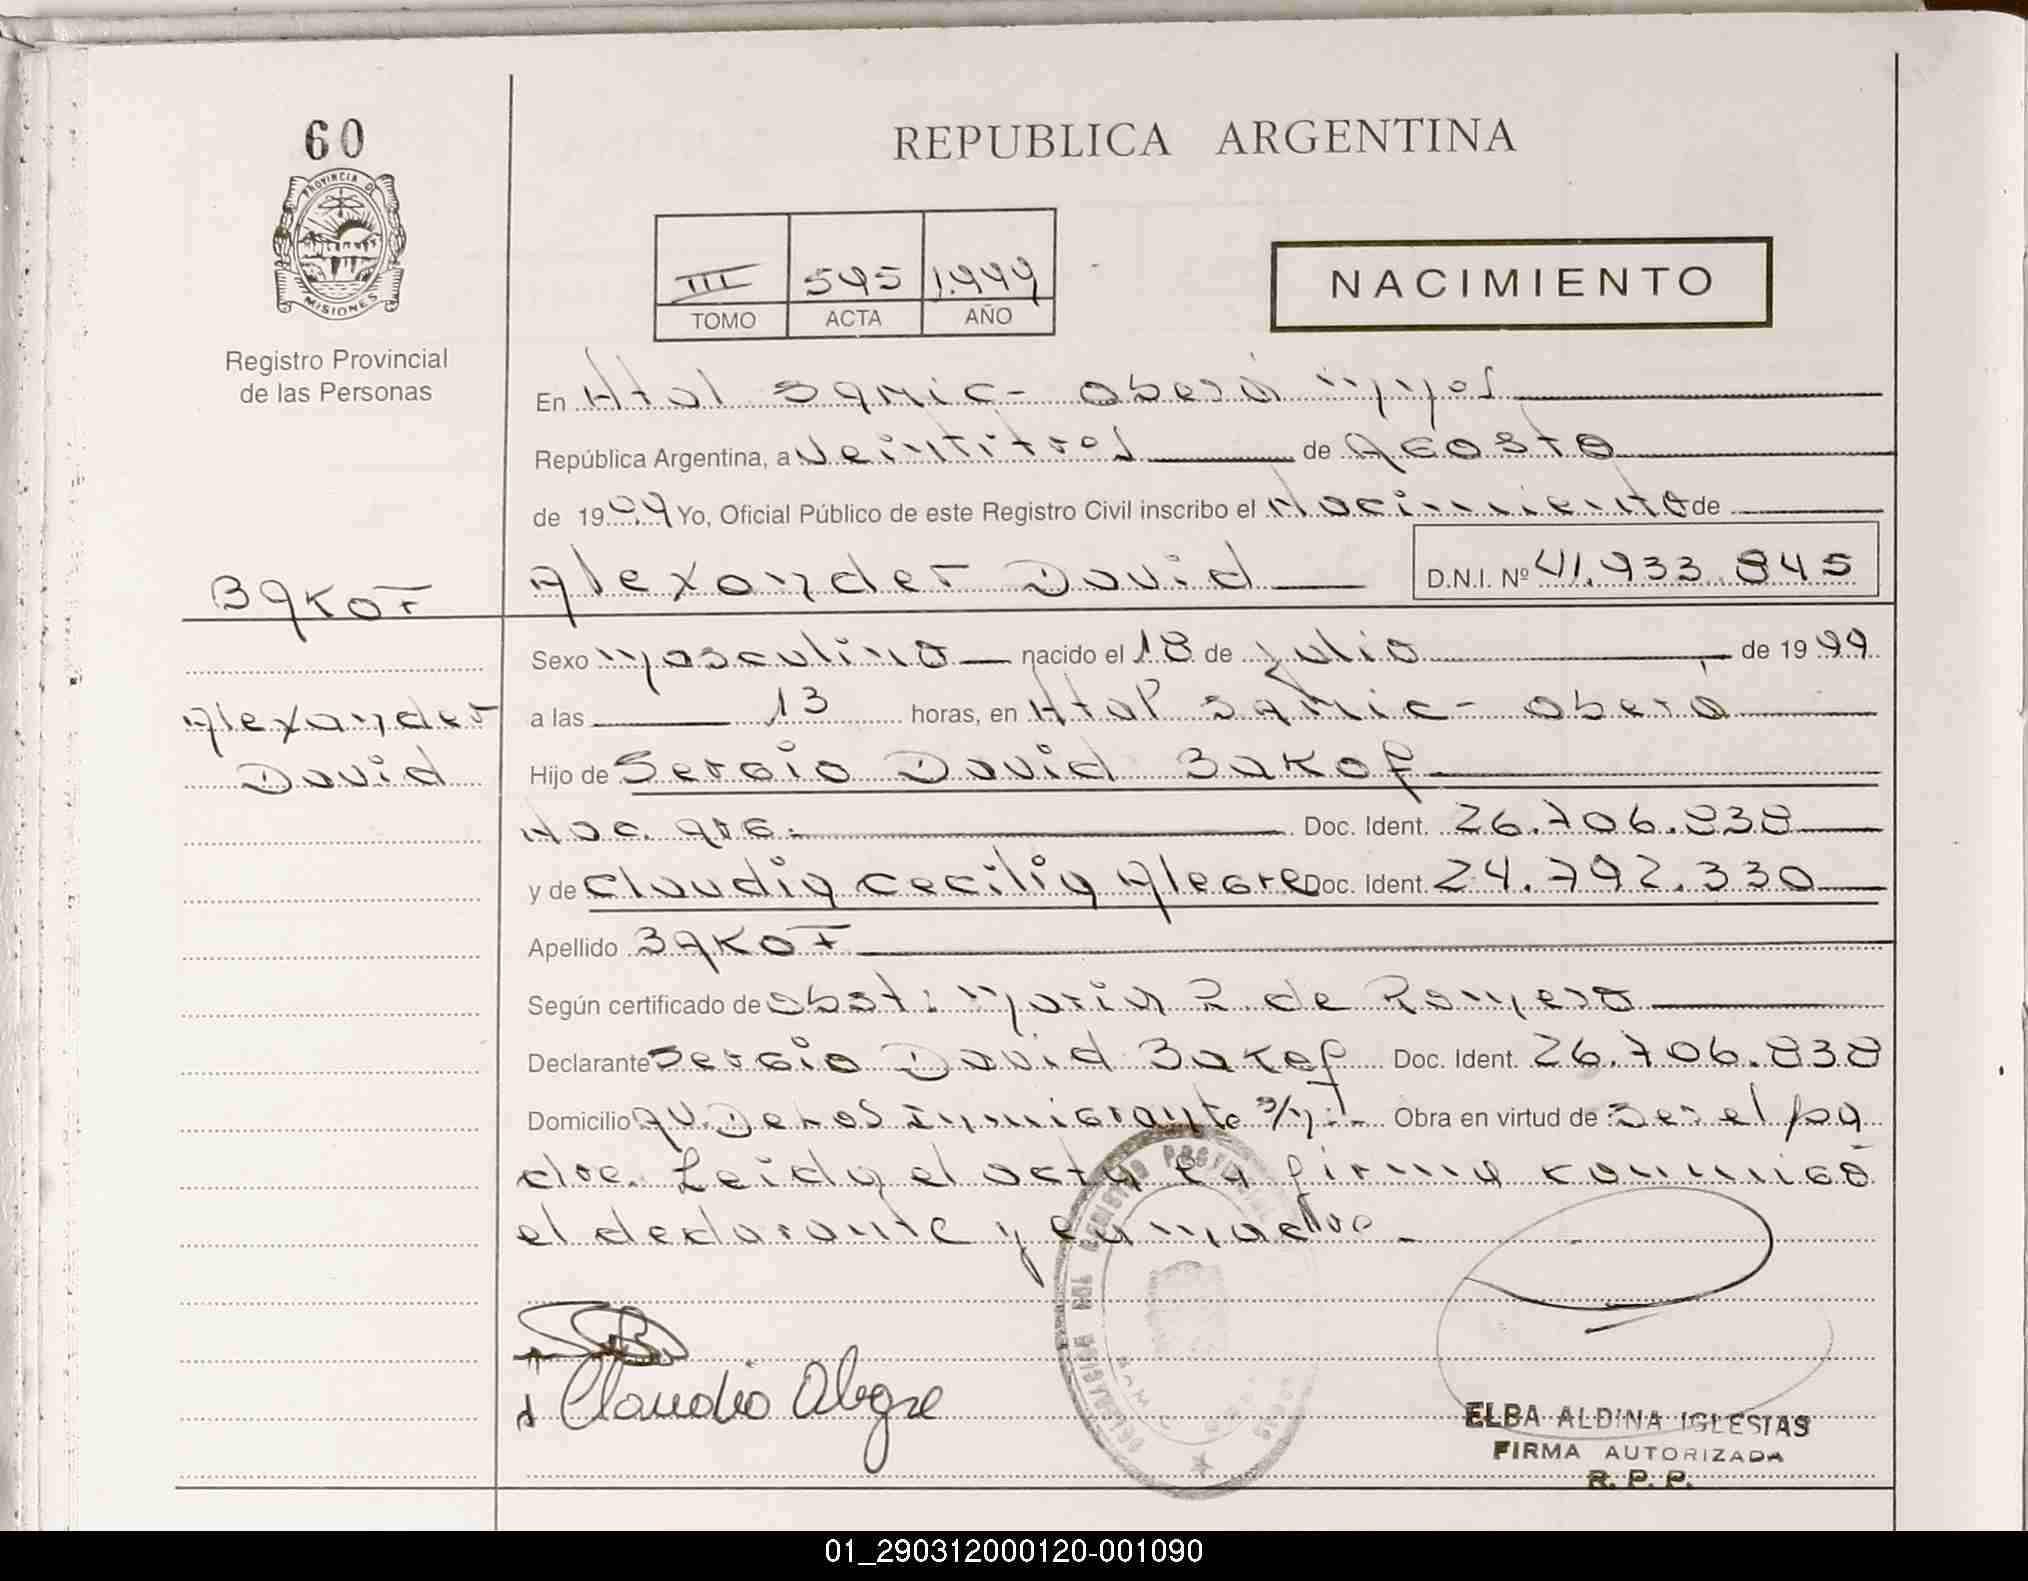 60
PROVINCIA DE
MISIONES
Registro Provincial
de las Personas
REPUBLICA ARGENTINA
III 595 1.999
TOMO ACTA AÑO
NACIMIENTO
En Htal SAMIC - Oberá Mnes
República Argentina, a veintitres de Agosto
de 1999 Yo, Oficial Público de este Registro Civil inscribo el Nacimiento de
Alexander David D.N.I. Nº 41.933.845
BAKOF
Alexander
David
Sexo Masculino nacido el 18 de Julio de 1999
a las 13 horas, en Htal SAMIC - Oberá
Hijo de Sergio David Bakof
Nac. Arg. Doc. Ident. 26.706.838
y de Claudia Cecilia Alegre Doc. Ident. 24.792.330
Apellido BAKOF
Según certificado de Obst: Maria R de Romero
Declarante Sergio David Bakof Doc. Ident. 26.706.838
Domicilio Av. De los Inmigrante s/n:- Obra en virtud de ser el pa
dre. Leida el acta la firma conmigo
el declarante y la madre.-
Claudia Alegre
DELEGACION DEL REGISTRO PROVINCIAL
ELBA ALDINA IGLESIAS
FIRMA AUTORIZADA
R. P. P.
01_290312000120-001090